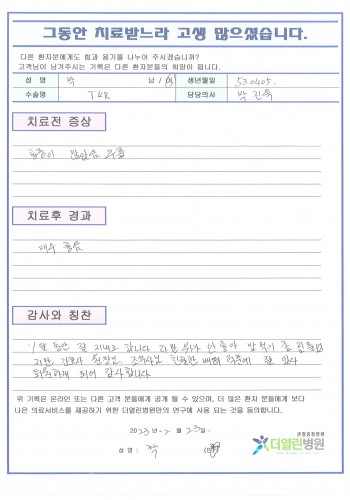 그동안 치료받느라 고생 많으셨습니다.
다른 환자분에게도 힘과 용기를 나누어 주시겠습니까?
고객님이 남겨주시는 기록은 다른 환자분들의 희망이 됩니다.
성 명 박 남 / 여 생년월일 530405.
수술명 TKR 담당의사 박
치료전 증상
통증이 많았음 무릎
치료후 경과
매우 좋음
감사와 칭찬
동안 잘 지내고 갑니다 안 좋아 힘들었
지만 간호사 원장님 조무사님 친절한 잘 있다
퇴원하게 되어 감사합니다
위 기록은 온라인 또는 다른 고객 분들에게 공개 될 수 있으며, 더 많은 환자 분들에게 보다
나은 의료서비스를 제공하기 위한 더열린병원만의 연구에 사용 되는 것을 동의합니다.
2023년 2 월 23일.
성 명 : 박
관절중점병원
더열린병원